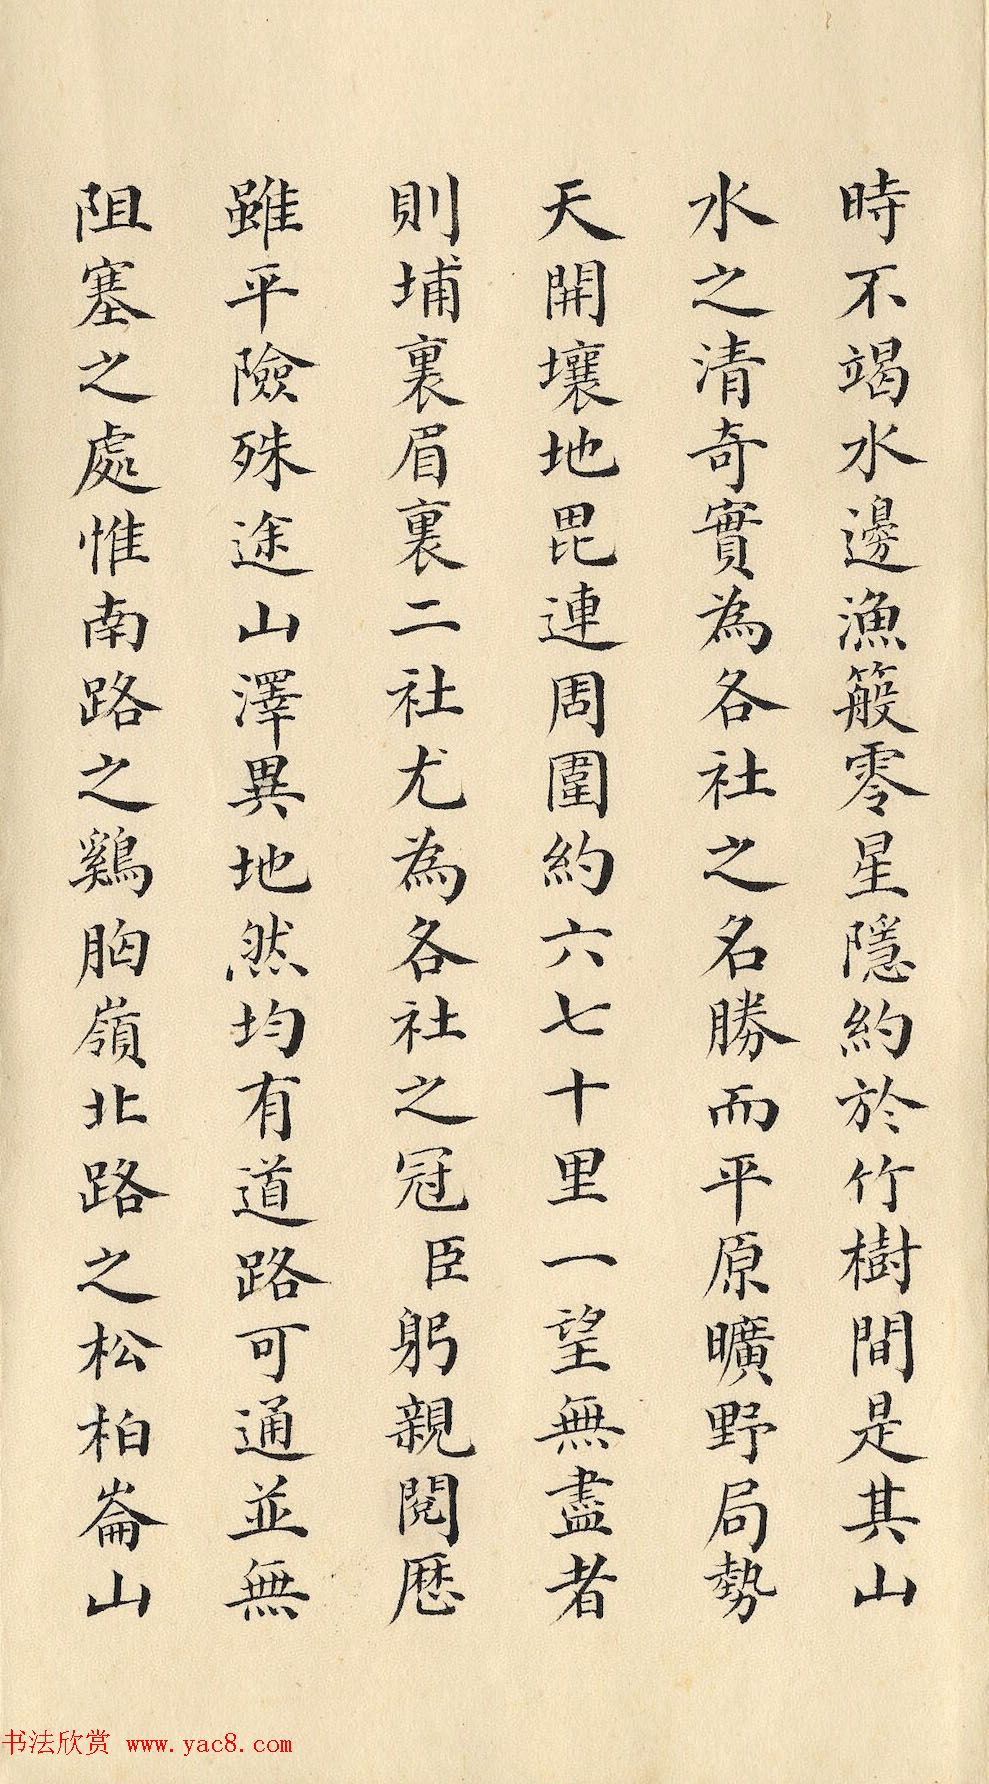 時不竭水邊漁簰零星隱約於竹樹間是其山
水之清奇實為各社之名勝而平原曠野局勢
天開壤地毘連周圍約六七十里一望無盡者
則埔裏眉裏二社尤為各社之冠臣躬親閱歷
雖平險殊途山澤異地然均有道路可通並無
阻塞之處惟南路之鷄胸嶺北路之松柏崙山
书法欣赏 www.yac8.com